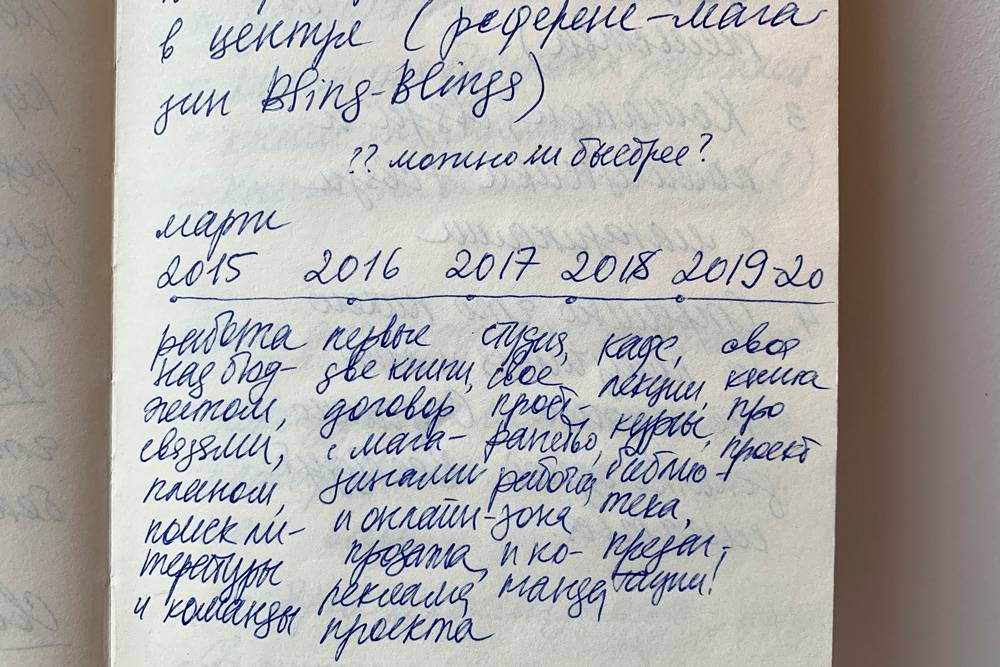 в центре (референс-мага
зин Bling-Blings)
?? можно ли быстрее?
март
2015 2016 2017 2018 2019-20
работа
над бюд-
жетом,
связями,
планом,
поиск ли-
тературы
и команды
первые
две книги,
договор
с мага-
зинами
и онлайн-
продажа,
реклама
проекта
студия,
своё
прост-
ранство,
работа,
зона
и ко-
манда
кафе,
лекции,
курсы,
библио-
тека,
презен-
тации!
своя
книга
про
проект